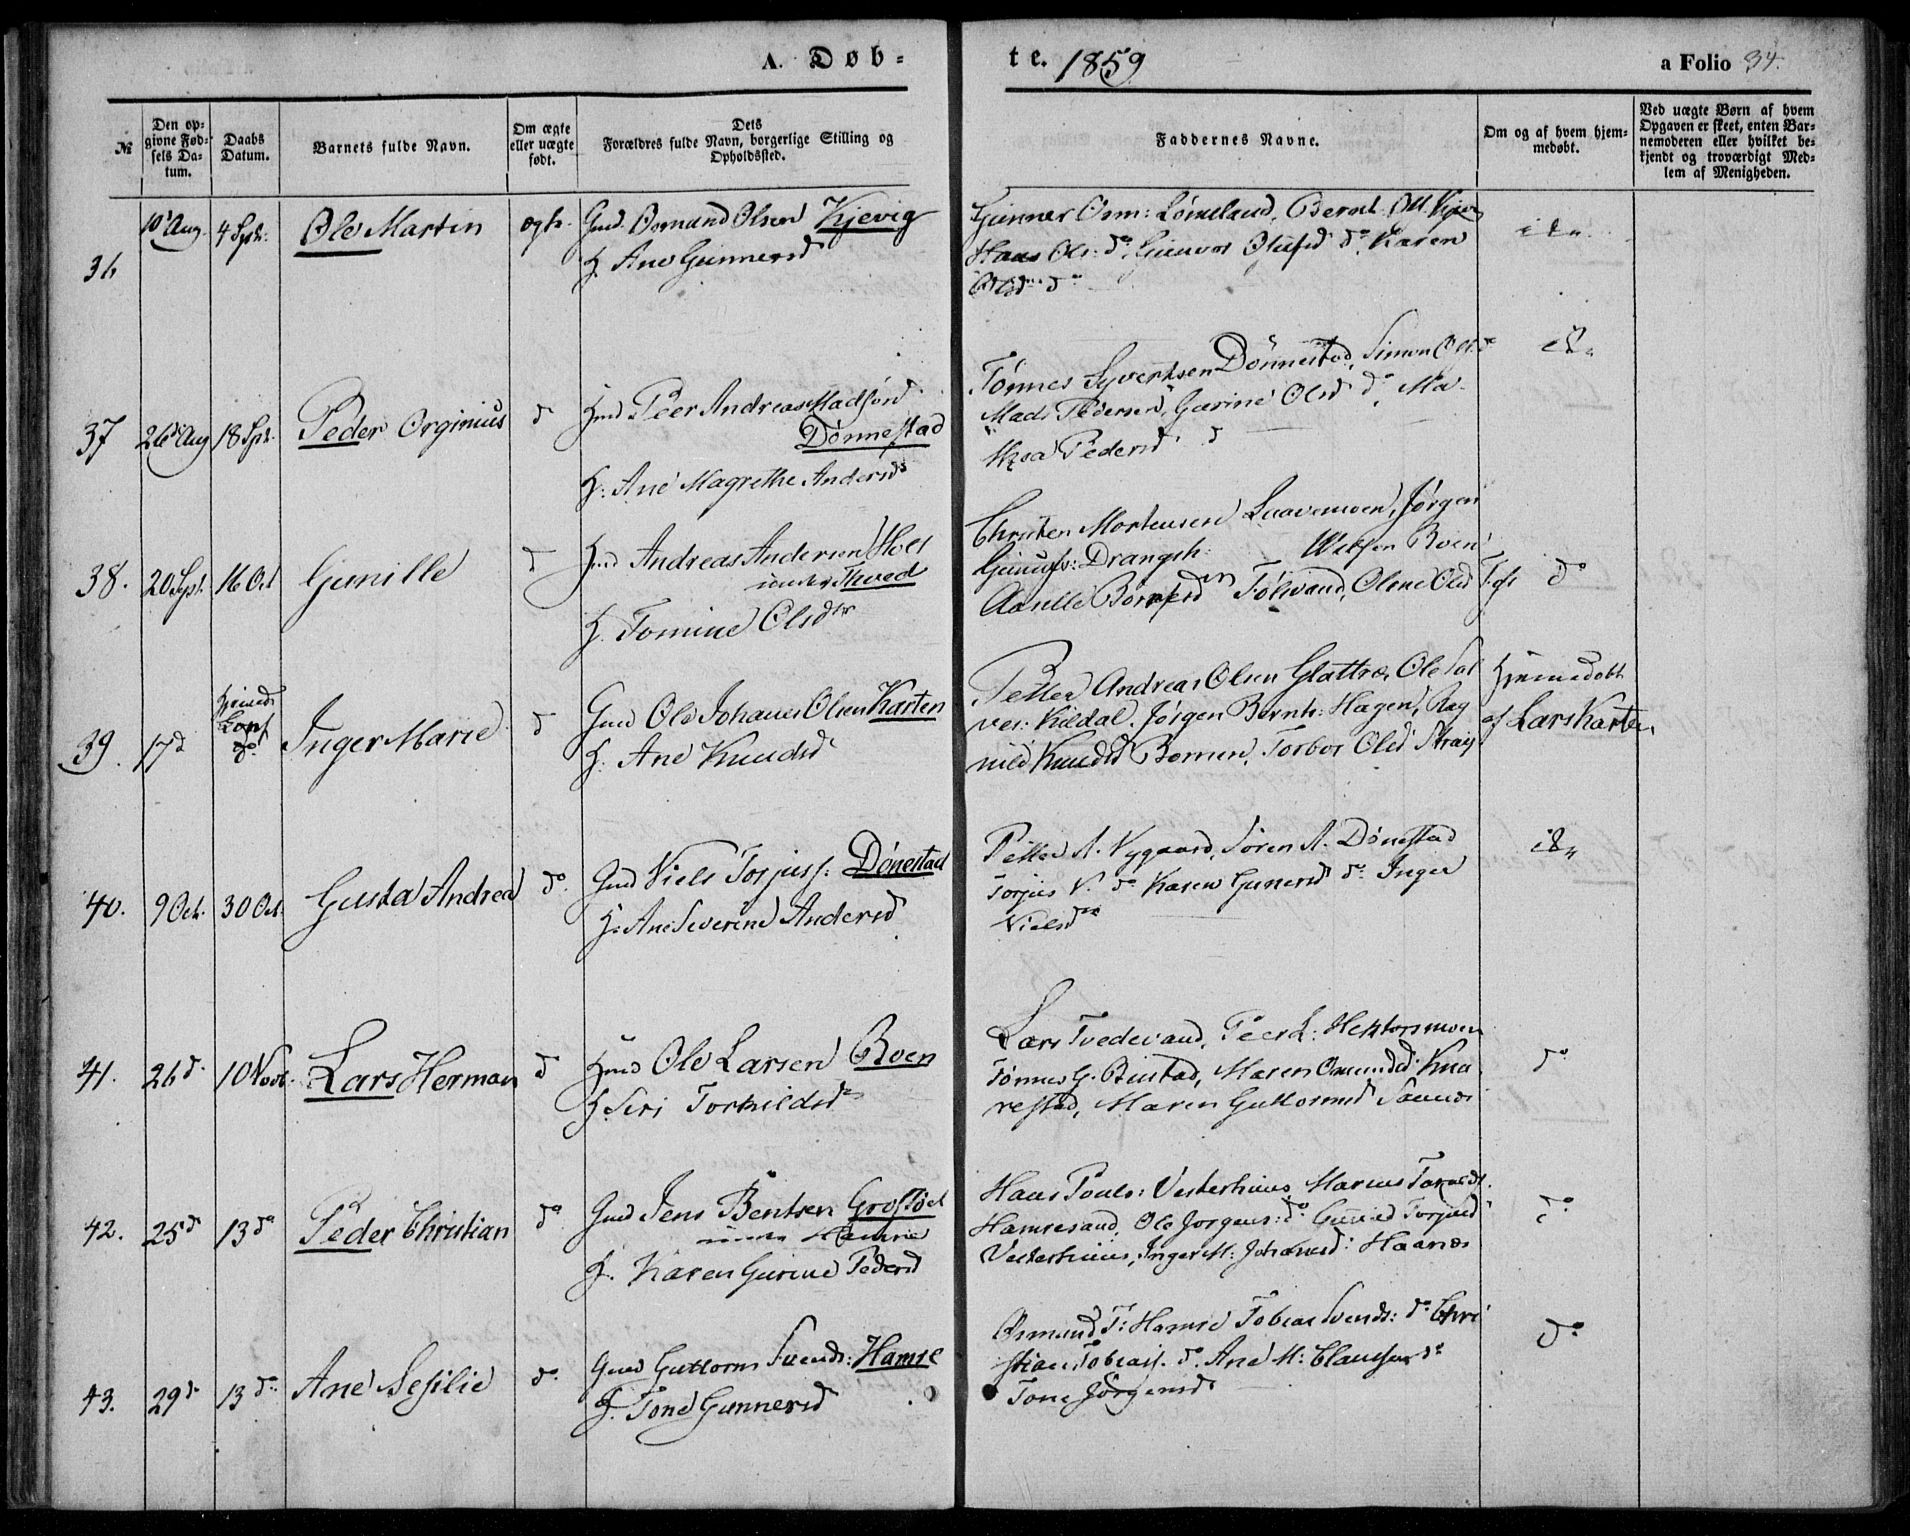 A. Døb-
te. 1859
a Folio 34.
№
Den op-
givne Fød-
sels Da-
tum.
Daabs
Datum.
Barnets fulde Navn.
Om ægte
eller uægte
født.
Dets
Forældres fulde Navn, borgerlige Stilling og
Opholdssted.
Faddernes Navne.
Om og af hvem hjem-
medøbt.
Ved uægte Børn af hvem
Opgaven er skeet, enten Bar-
nemoderen eller hvilket be-
kjendt og troværdigt Med-
lem af Menigheden.
36
10 Aug.
4 Sptr.
Ole Martin
ægte.
Gmd. Osmund Olsen Kjevig
H. Ane Gunnersd
Gunner Osm: Lømeland, Bernt Ol. Kjev
Hans Ols: do, Gunvor Olufsd do, Karen
Olsd do
37
26 Aug
18 Spt.
Peder Orginius
d
Hmd Peer Andreas Madsøn
Dønnestad
H. Ane Magrethe Andersd
Tønnes Syvertsen Dønnestad, Simon Ols. do
Mads Pedersen, Gurine Olsd do, Ma-
Pedersd d
38.
20 Spt.
16 Oct
Gunille
d
Hmd Andreas Andersen Holt
under Tveed
H. Tomine Olsdtr
Christen Mortensen Laavemoen, Jørgen
Gunufs: Drangsh. Boen
Aasille Tølvand, Olene Olsd
do
39.
17 d
Hjemd
Conf
do
Inger Marie
d
Gmd Ole Johannes Olsen Karten
H. Ane Knudsd
Petter Andreas Olsen Glattre, Ole Sal
ves: Kildal. Jørgen Bernts: Hagen, Rag
nild Knudsd Bomen, Torbor Olsd Strai
Hjemmedøbt
af Lars Karten
40.
9 Oct.
30 Oct.
Gusta Andrea
do.
Gmd Niels Torjuss: Dønestad
H. Ane Severine Andersd
Petter A. Nygaard, Søren A. Dønestad
Torjus N. do Karen Gunersd do Inger
Nielsd
41.
26 d.
10 Novb.
Lars Herman
d
Hmd Ole Larsen Boen
H. Siri Torkildsd
Lars Tvedevand, Peer L: Heftorsmoen
Tønnes G. Bustad, Maren Omundsd Kna
restad, Maren Guttormsd
do
42.
25 d
13 do
Peder Christian
do
Gmd Jens Bentsen Grostøl
under Hamre
H. Karen Gurine Pedersd
Hans Pouls: Vesterhuus, Marcus
Hamresand, Ole Jorgens: do Torjusd
Vesterhuus, Inger M: Johansd: Haanes
do
43.
29 d.
13 do.
Ane Sesilie
do.
Gmd Guttorm Svends: Hamre
H. Tone Gunnersd
Osmund T: Hamre Tobias Svends: do Chri
stian Tobiass. do. Ane M: Clausen do
Tone Jørgensd
do